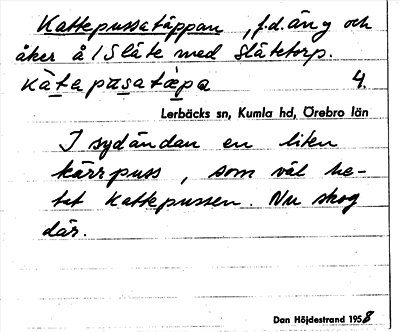 Kattepussatäppan, f.d. äng och
åker å 1 Släte med Slätetorp.
kàta pɷsatæ̀pa 4.
Lerbäcks sn, Kumla hd, Örebro län
I sydändan en liten
kärrpuss, som väl he-
tat Kattepussen. Nu skog
där.
Dan Höjdestrand 1958